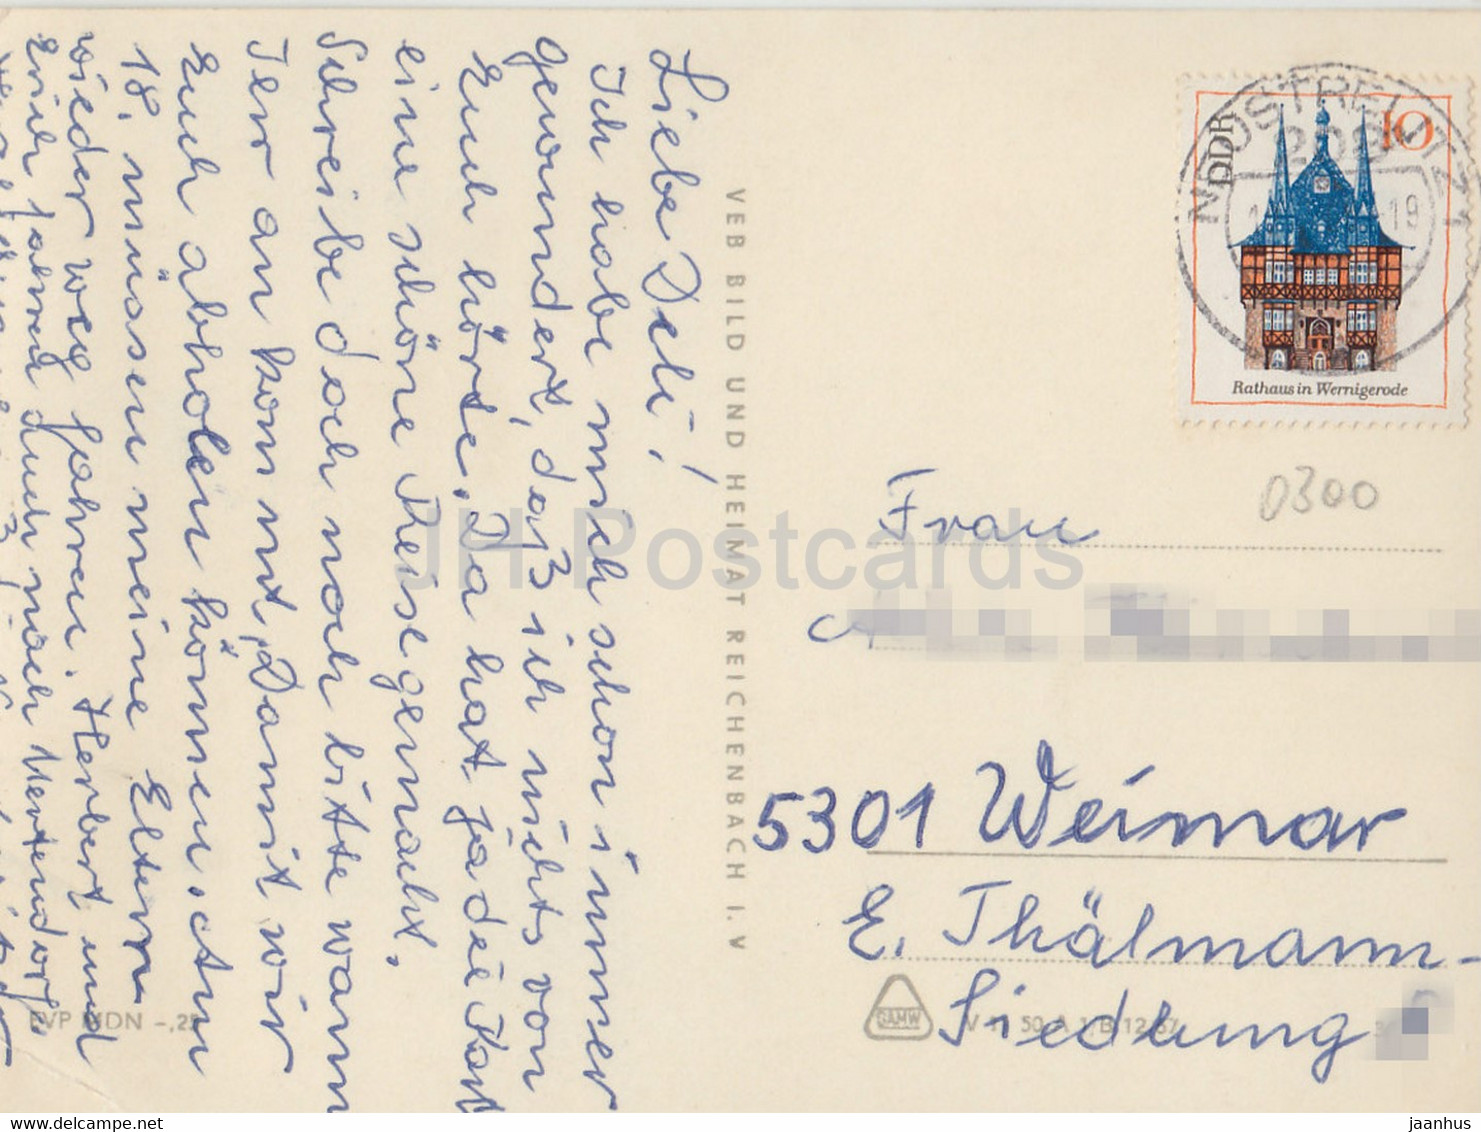 Liebe Deli!
Ich habe mich schon immer
gewundert, daß ich nichts von
Euch hörte. Da hat ja die Post
eine schöne Reise gemacht.
Schreibe doch noch bitte wann
Ier an kommt, Damit wir
Euch abholen können. Am
18. müssen meine Eltern
wieder weg fahren. Herbert und
Erich fahren auch nach
VEB BILD UND HEIMAT REICHENBACH I. V
EVP MDN -,25
NEUSTRELITZ 1
208
-19
DDR
10
Rathaus in Wernigerode
0300
Frau
5301 Weimar
E. Thälmann-
Siedlung
SAMW
JH Postcards
jaanhus
www.delcampe.net